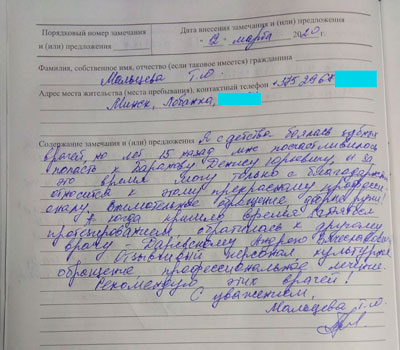 Порядковый номер замечания
и (или) предложения
Дата внесения замечания и (или) предложения
2 марта 2020 г.
Фамилия, собственное имя, отчество (если таковое имеется) гражданина
Мальцева Т.Ю.
Адрес места жительства (места пребывания), контактный телефон +375 2968
Минск, Лобанка,
Содержание замечания и (или) предложения Я с детства боялась зубных
врачей, но лет 15 назад мне посчастливилось
попасть к Баранову Денису Юрьевичу, и за
это время могу только с благодарностью
относится к этому прекрасному професси
оналу. Внимательное обращение, добрые руки.
А когда пришло время заняться
протезированием, обратилась к другому
врачу - Андрею Вячеславовичу.
Отзывчивый персонал, культурное
обращение, профессиональное лечение.
Рекомендую этих врачей!
С уважением,
Мальцева Т.Ю.